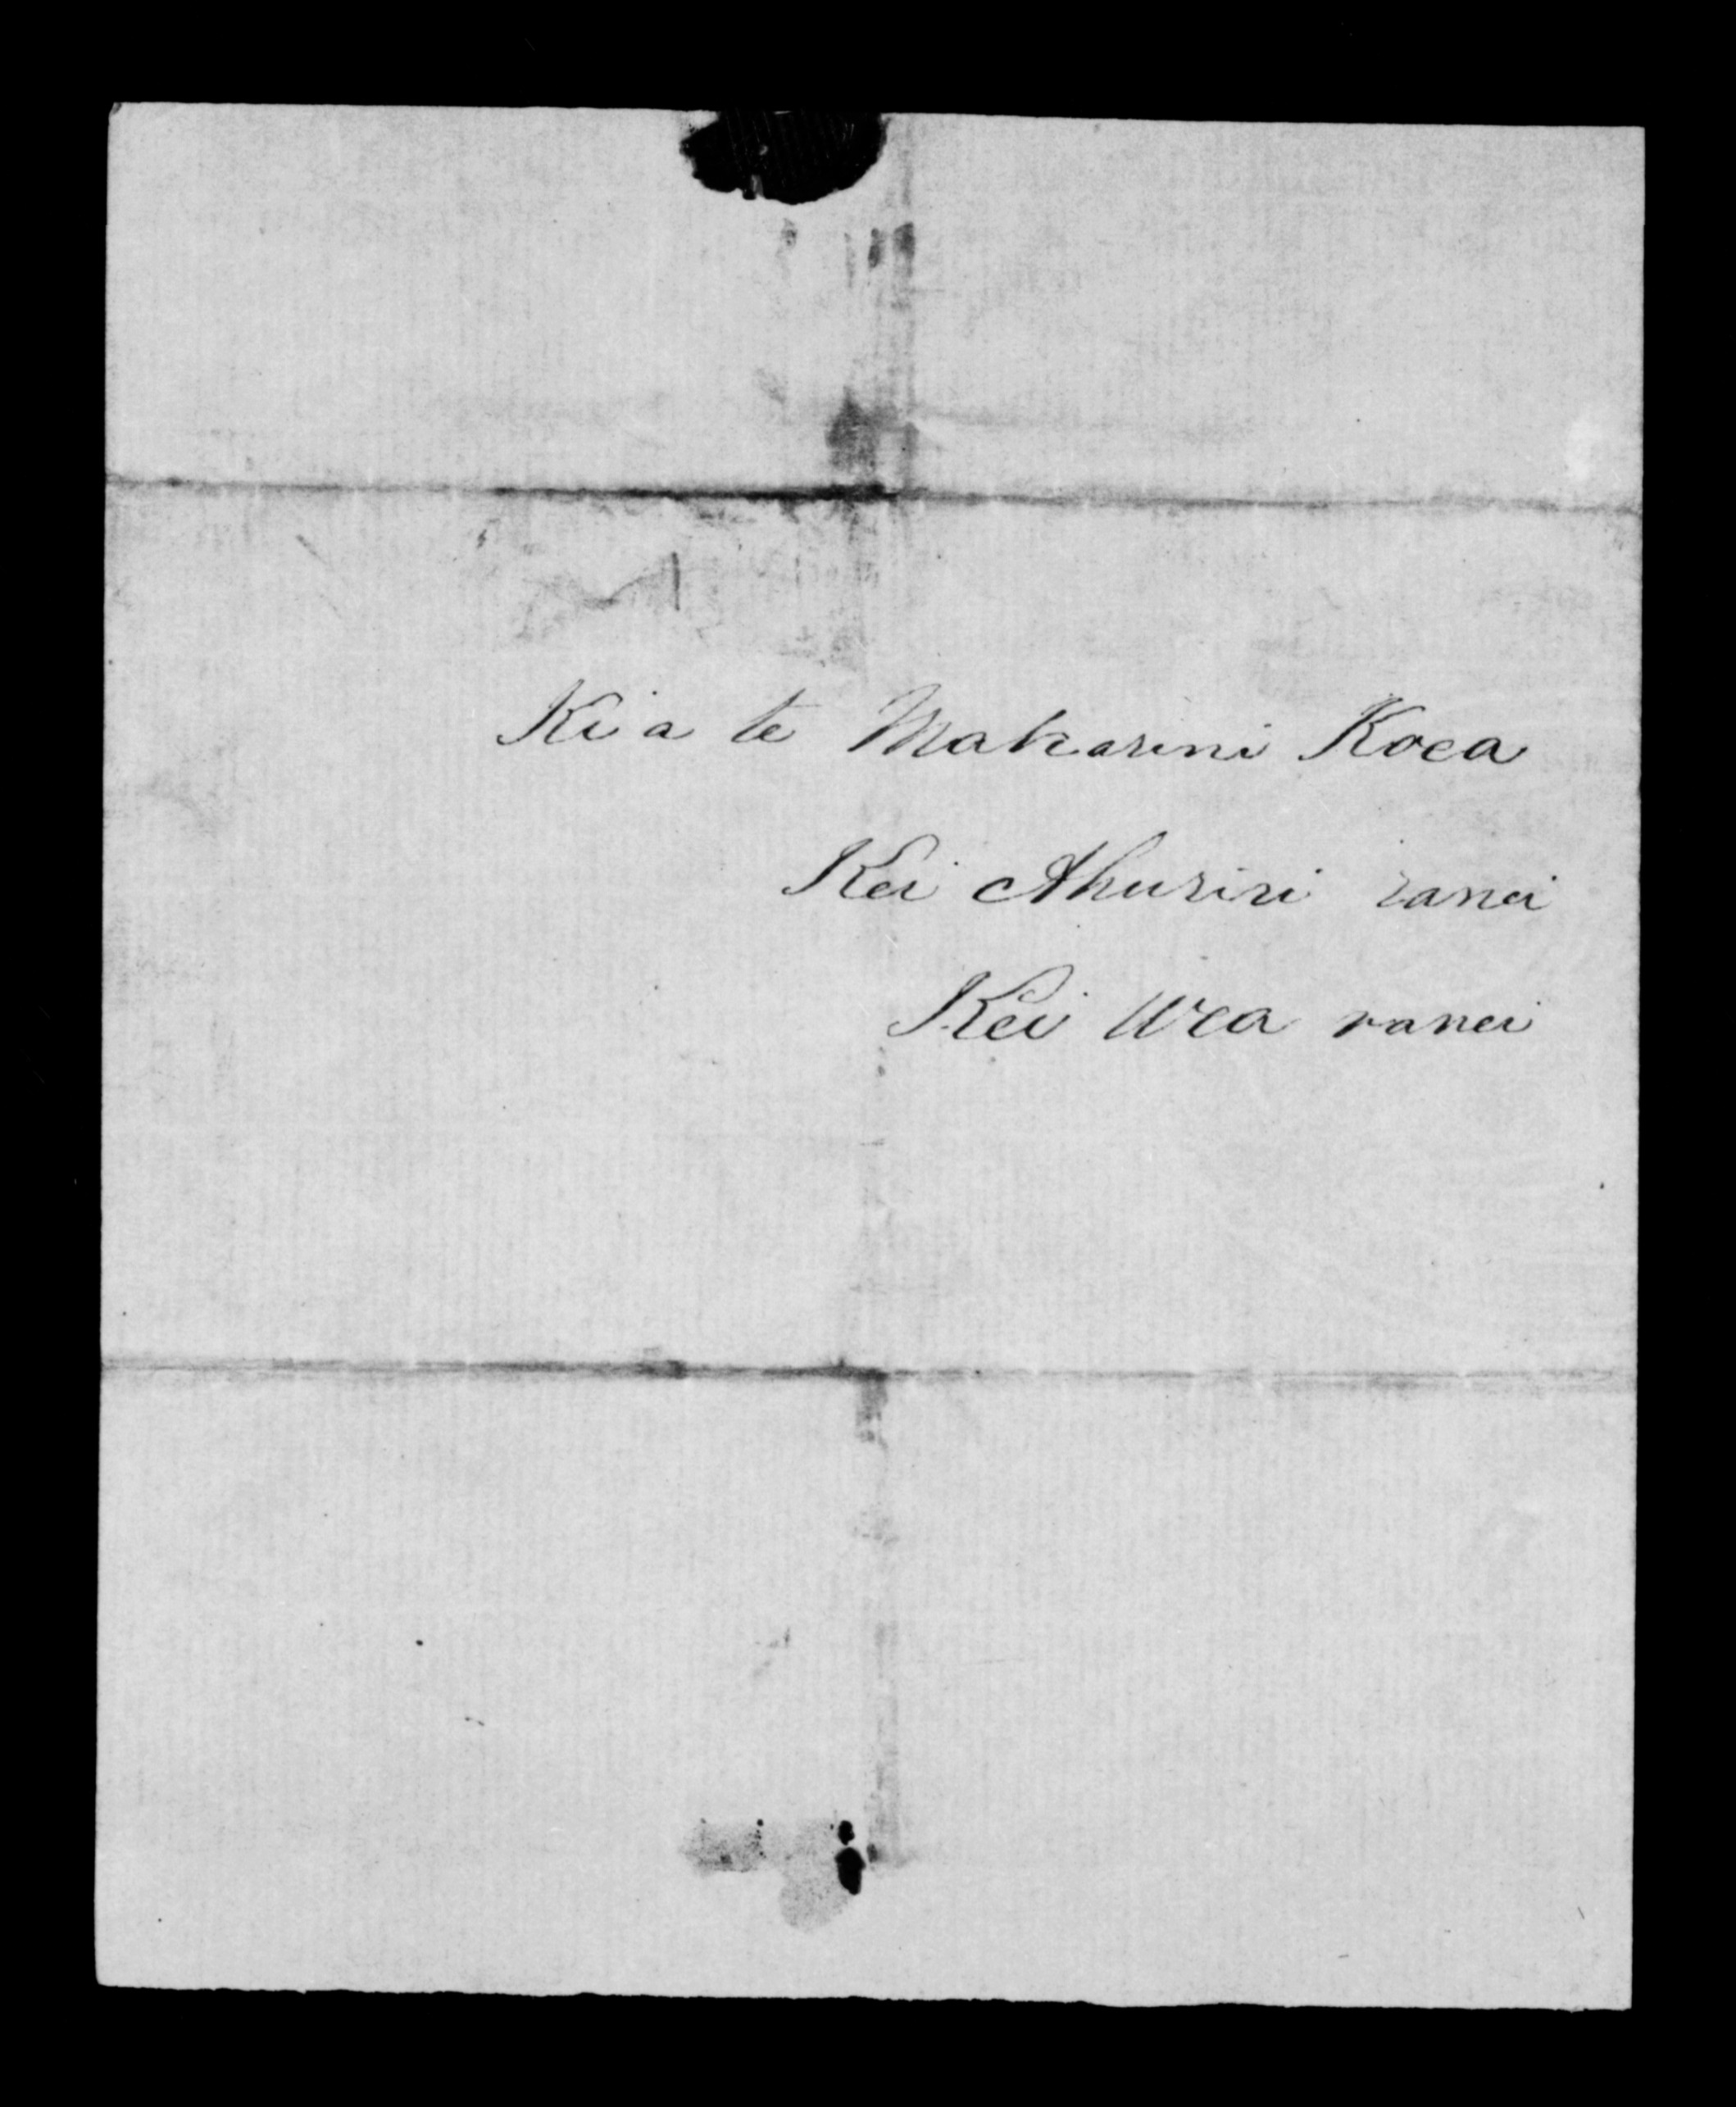 Kia te Makarini Koea
Kei Ahuriri ranei
Kei Wea ranei